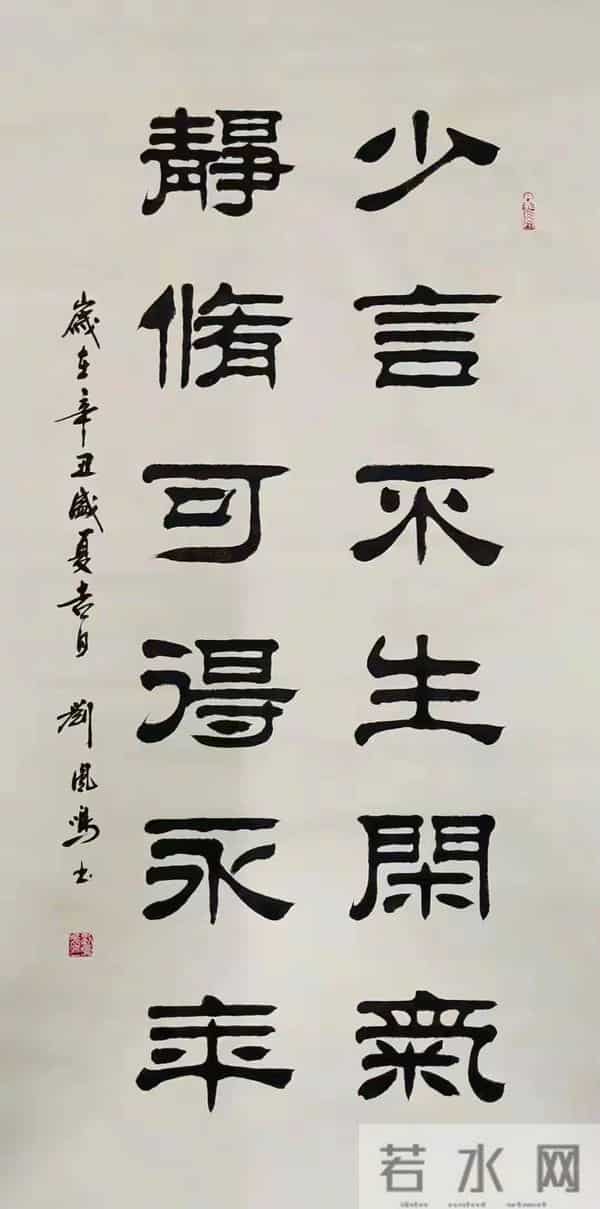 少言不生閑氣
靜脩可得永年
歲在辛丑盛夏吉日 劉鳳鳴書
若水网